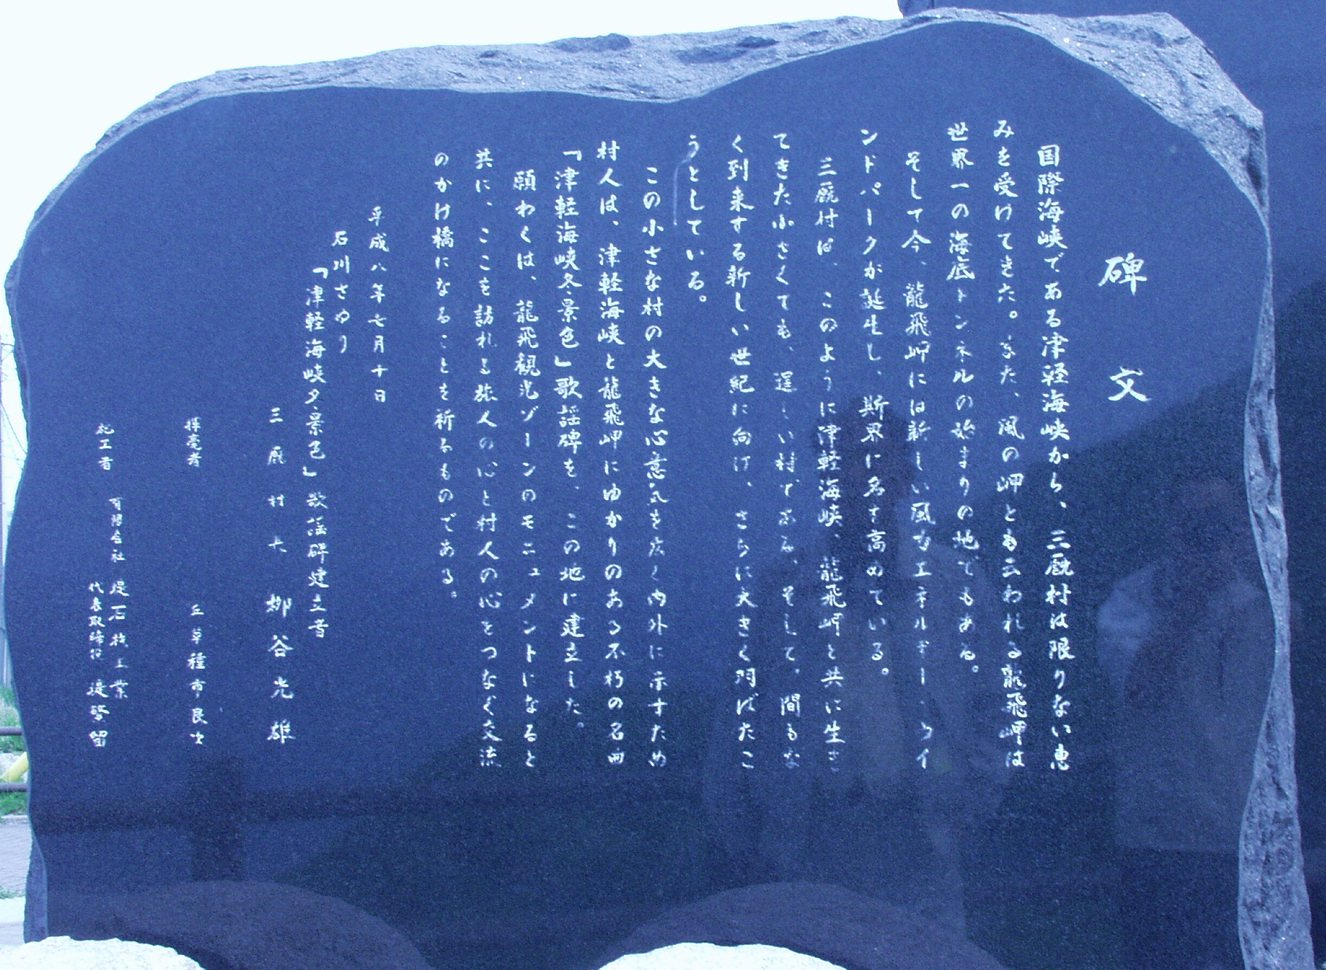 碑文
国際海峡である津軽海峡から、三厩村は限りない恵
みを受けてきた。また、風の岬とも云われる龍飛岬は
世界一の海底トンネルの始まりの地でもある。
そして今、龍飛岬には新しい風力エネルギー、ウイ
ンドパークが誕生し、斯界に名を高めている。
三厩村は、このように津軽海峡、龍飛岬と共に生き
てきた小さくても、逞しい村である。そして、間もな
く到来する新しい世紀に向け、さらに大きく羽ばたこ
うとしている。
この小さな村の大きな心意気を広く内外に示すため
村人は、津軽海峡と龍飛岬にゆかりのある不朽の名曲
「津軽海峡冬景色」歌謡碑を、この地に建立した。
願わくは、龍飛観光ゾーンのモニュメントになると
共に、ここを訪れる旅人の心と村人の心をつなぐ交流
のかけ橋になることを祈るものである。
平成八年七月十日
石川さゆり
「津軽海峡冬景色」歌謡碑建立者
三厩村長 柳谷光雄
揮毫者 草種市良
施工者 有限会社 堤石材工業
代表取締役 堤啓留